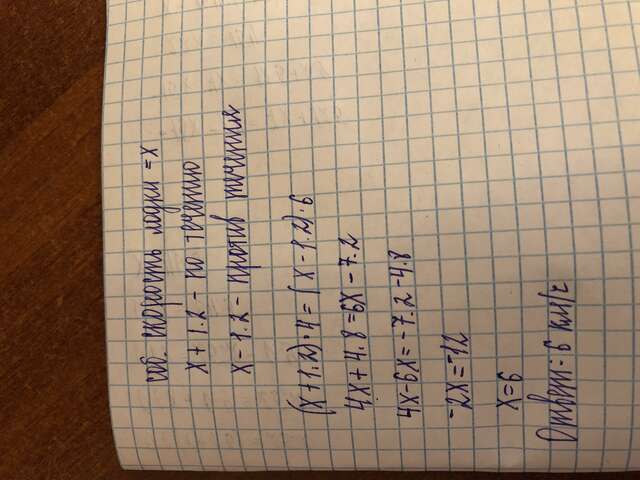 соб. скорость лодки = x
x + 1.2 - по течению
x - 1.2 - против течения
(x+1.2)·4 = (x-1.2)·6
4x + 4.8 = 6x - 7.2
4x - 6x = -7.2 - 4.8
-2x = -12
x = 6
Ответ: 6 км/ч